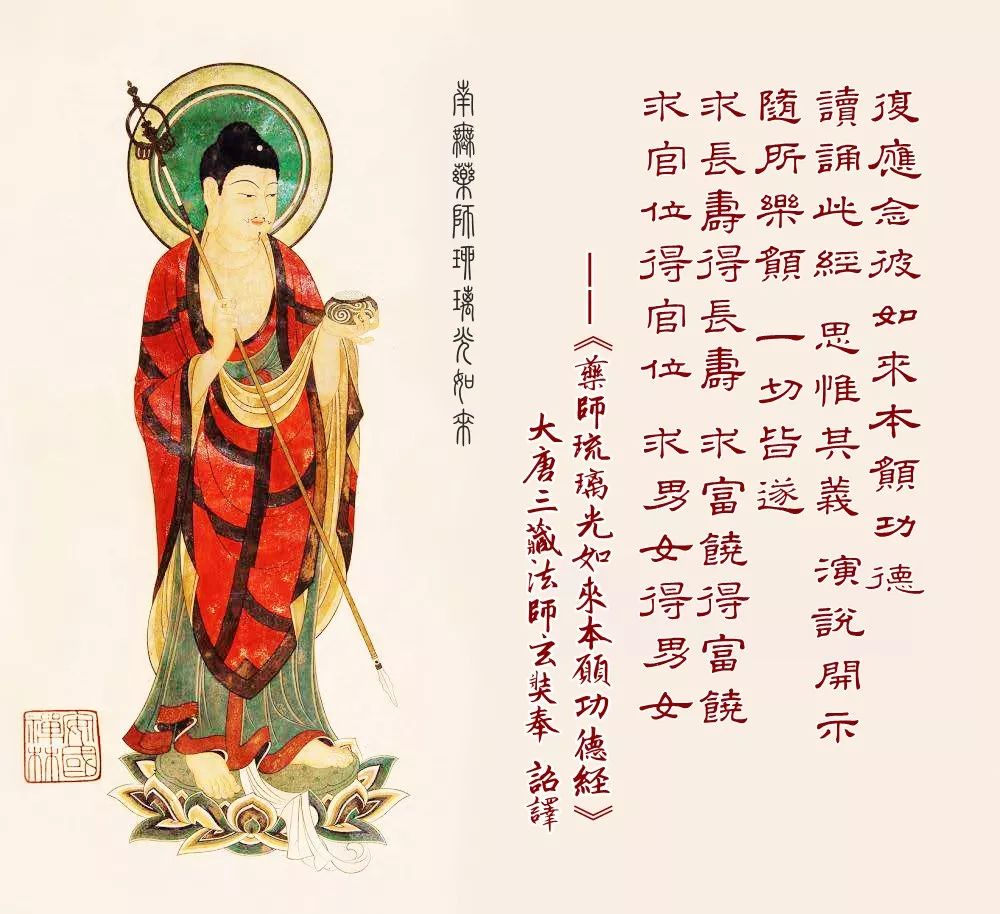 復應念彼如來本願功德
讀誦此經 思惟其義 演說開示
隨所樂願 一切皆遂
求長壽得長壽 求富饒得富饒
求官位得官位 求男女得男女
——《藥師琉璃光如來本願功德經》
大唐三藏法師玄奘奉 詔譯
南無藥師琉璃光如来
安國禪林